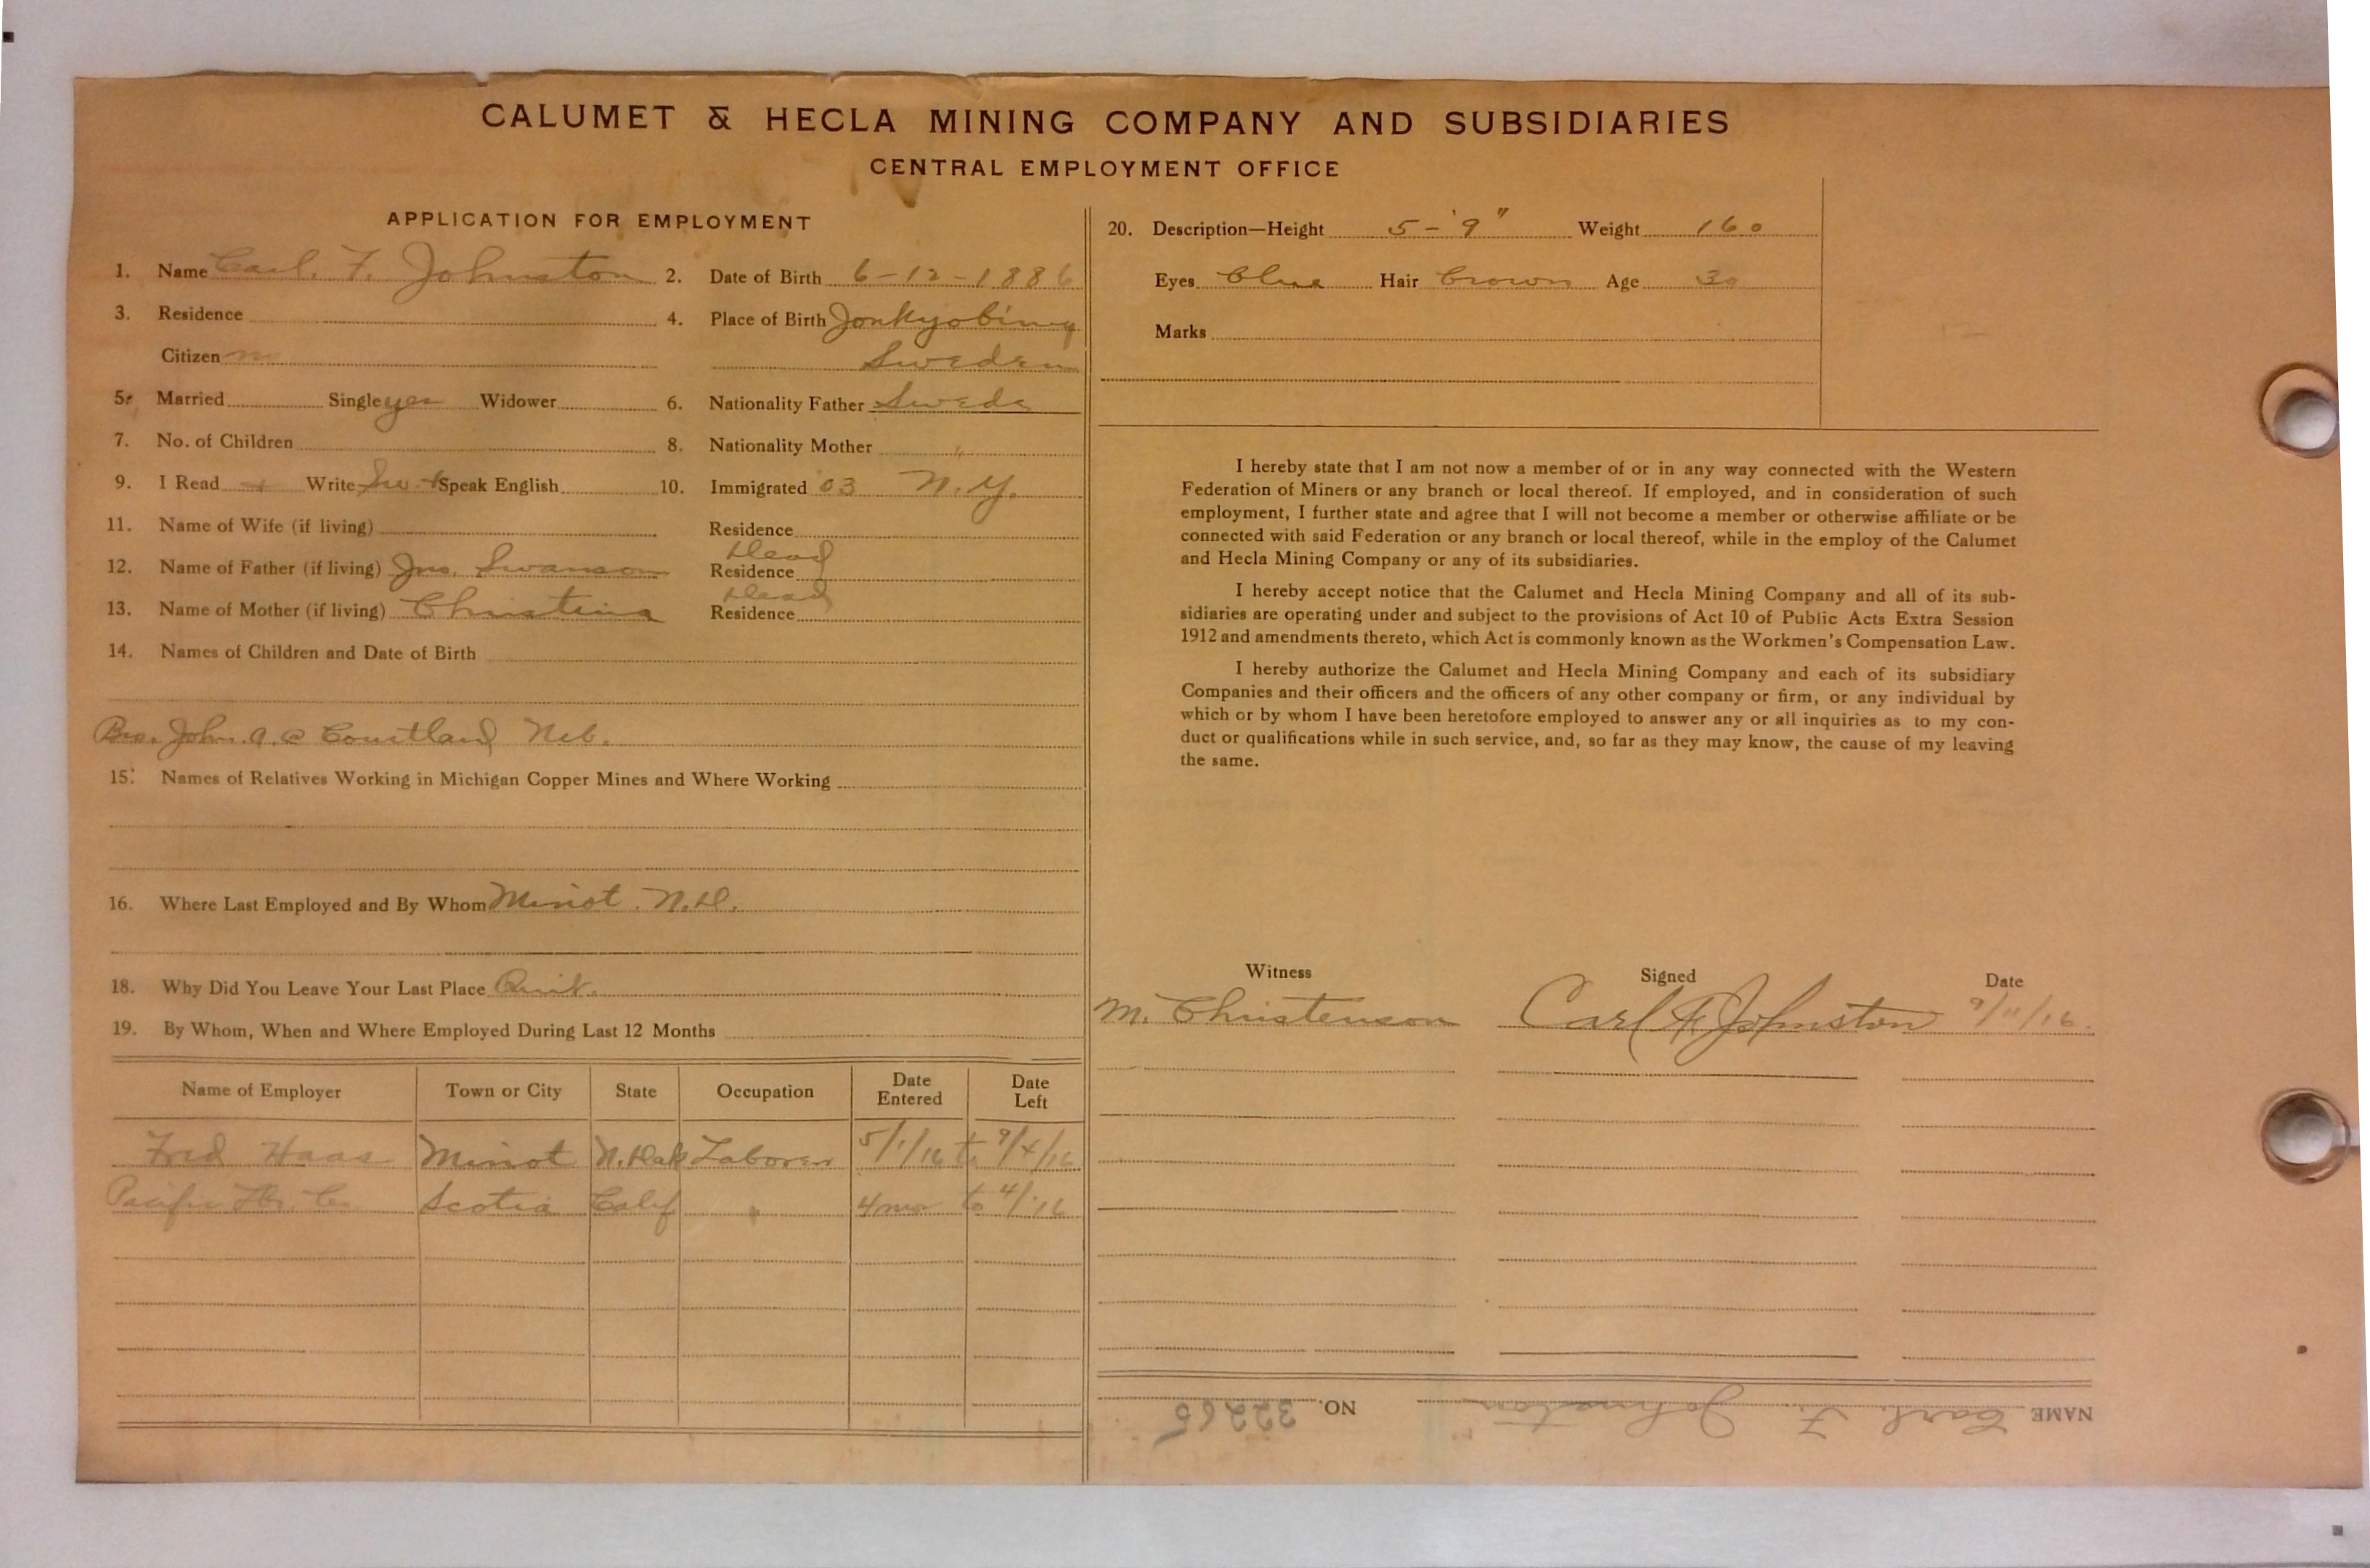 CALUMET & HECLA MINING COMPANY AND SUBSIDIARIES
CENTRAL EMPLOYMENT OFFICE
APPLICATION FOR EMPLOYMENT
1. Name Carl. F. Johnston 2. Date of Birth 6-12-1886
3. Residence 4. Place of Birth Jonkyobing
Citizen no Sweden
5. Married Single yes Widower 6. Nationality Father Swede
7. No. of Children 8. Nationality Mother "
9. I Read + Write Sw. + Speak English 10. Immigrated '03 N.Y.
11. Name of Wife (if living) Residence
12. Name of Father (if living) Jno. Swanson Residence Dead
13. Name of Mother (if living) Christina Residence Dead
14. Names of Children and Date of Birth
Bro. John. A. @ Courtland Neb.
15. Names of Relatives Working in Michigan Copper Mines and Where Working
16. Where Last Employed and By Whom Minot. N.D.
18. Why Did You Leave Your Last Place Quit.
19. By Whom, When and Where Employed During Last 12 Months
Name of Employer Town or City State Occupation Date Entered Date Left
Fred Haas Minot N. Dak Laborer 5/1/16 to 9/4/16
Pacific Lbr. Co. Scotia Calif " 4 mo to 4/'16
20. Description—Height 5-'9" Weight 160
Eyes Blue Hair Brown Age 30
Marks
I hereby state that I am not now a member of or in any way connected with the Western
Federation of Miners or any branch or local thereof. If employed, and in consideration of such
employment, I further state and agree that I will not become a member or otherwise affiliate or be
connected with said Federation or any branch or local thereof, while in the employ of the Calumet
and Hecla Mining Company or any of its subsidiaries.
I hereby accept notice that the Calumet and Hecla Mining Company and all of its sub-
sidiaries are operating under and subject to the provisions of Act 10 of Public Acts Extra Session
1912 and amendments thereto, which Act is commonly known as the Workmen's Compensation Law.
I hereby authorize the Calumet and Hecla Mining Company and each of its subsidiary
Companies and their officers and the officers of any other company or firm, or any individual by
which or by whom I have been heretofore employed to answer any or all inquiries as to my con-
duct or qualifications while in such service, and, so far as they may know, the cause of my leaving
the same.
Witness Signed Date
M. Christenson Carl F. Johnston 9/11/16.
NAME Carl. F. Johnston NO. 32265